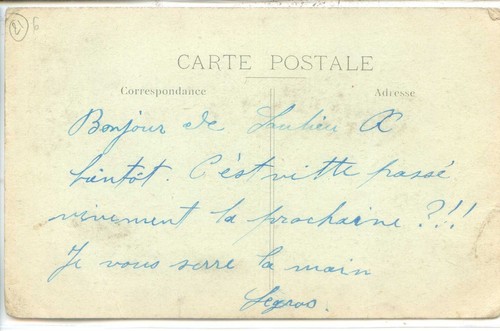 CARTE POSTALE
Correspondance
Adresse
Bonjour de Saulieu A
bientôt. C'est vitte passé
vivement la prochaine ?!!
Je vous serre la main
Legros.